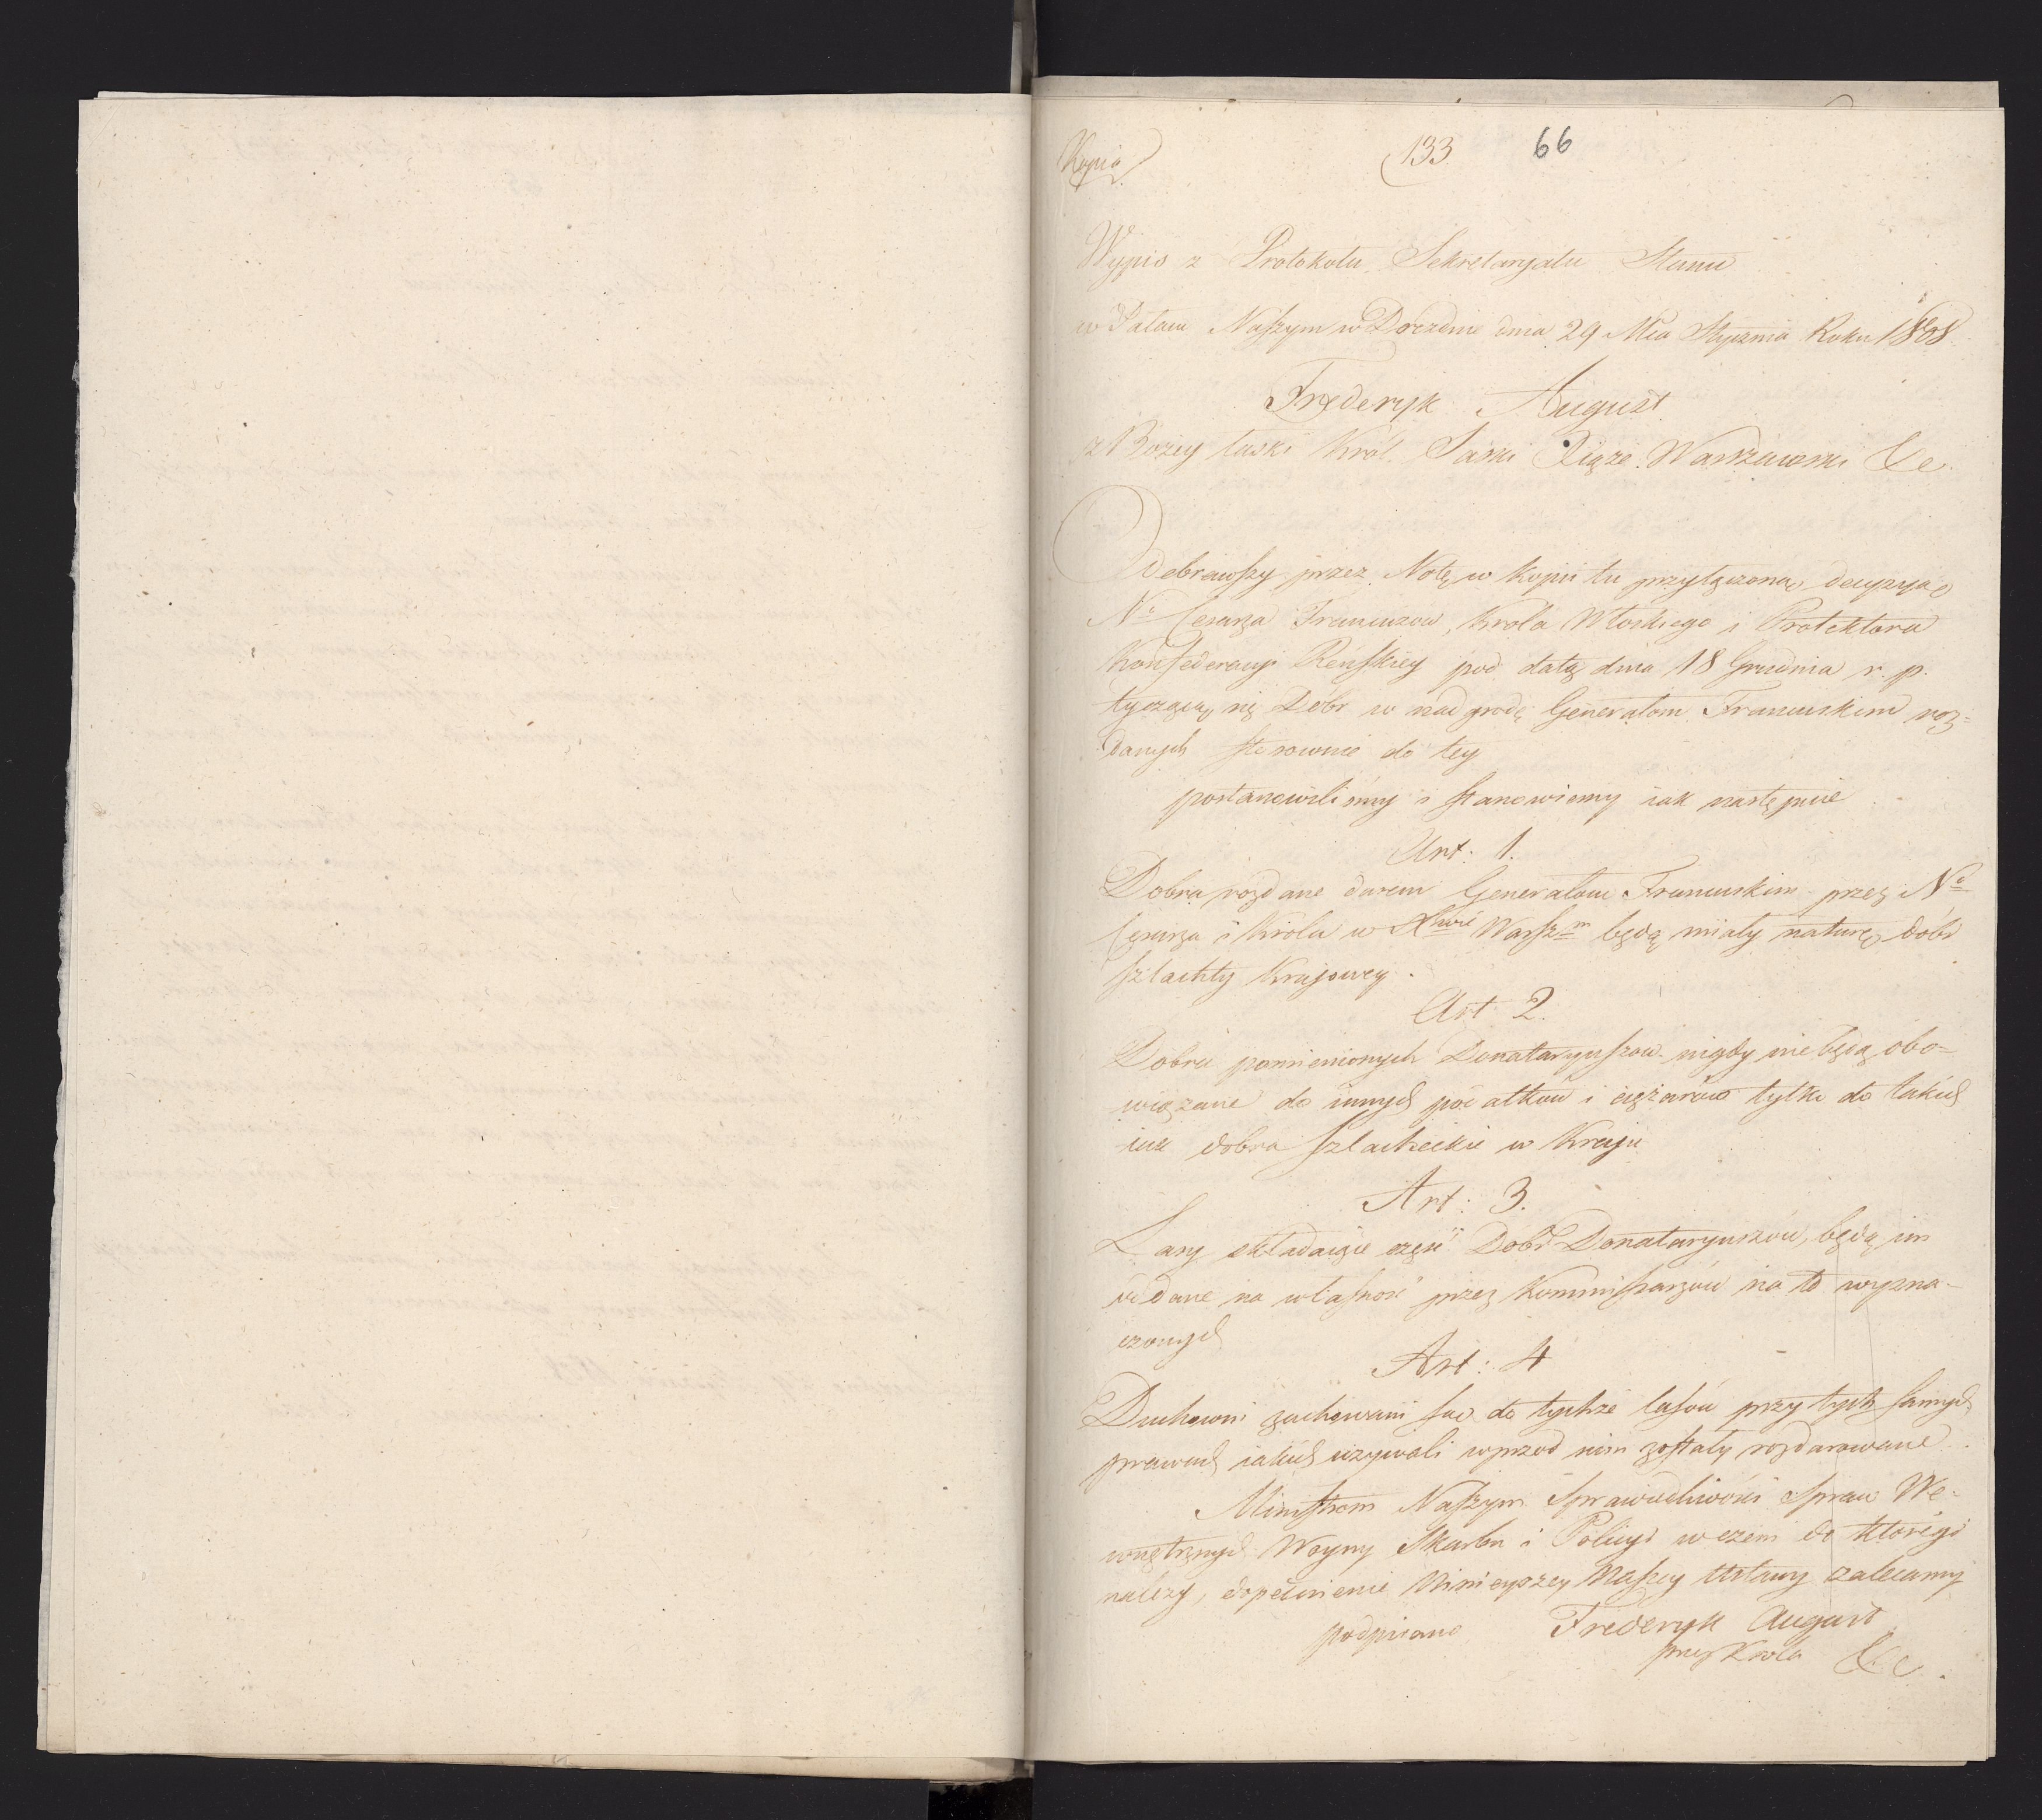 133 66
Kopia
Wypis z Protokołu Sekretaryatu Stanu
w Pałacu Naszym w Dreznie dnia 29 Mca Stycznia Roku 1808
Fryderyk August
z Bożey łaski Król Saski Xiąże Warszawski &c.
Odebrawszy przez Notę w kopii tu przyłączoną, decyzyą
Nο Cesarza Francuzow, Krola Włoskiego i Protektora
Konfederacyi Renskiey pod datą dnia 18 Grudnia r. p.
tyczącą się Dóbr w nadgrodę Generałom Francuskim roz=
danych stosownie do tey
postanowiliśmy i stanowiemy iak następuie
Art: 1.
Dobra rozdane darem Generałom Francuskim przez No
Cesarza i Króla w Xtwie Warszm będą miały naturę dóbr
szlachty Kraiowey.
Art 2.
Dobra pomienionych Donataryuszow nigdy nie będą obo=
wiązane do innych podatków i ciężarów tylko do takich
iak dobra szlacheckie w Kraju
Art: 3.
Lasy składaiące część Dóbr Donataryuszów, będą im
oddane na własność przez Kommissarzów na to wyzna-
czonych
Art: 4
Duchowni zachowani są do tychże lasów przy tych samych
prawach iakich uzywali wprzod nim zostały rozdarowane.
Ministrom Naszym Sprawiedliwości Spraw We-
wnętrznych Woyny Skarbu i Policyi w czem do ktorego
należy, dopełnienie Ninieyszey Naszey Ustawy zalecamy
podpisano Frederyk August
przez Krola &c.